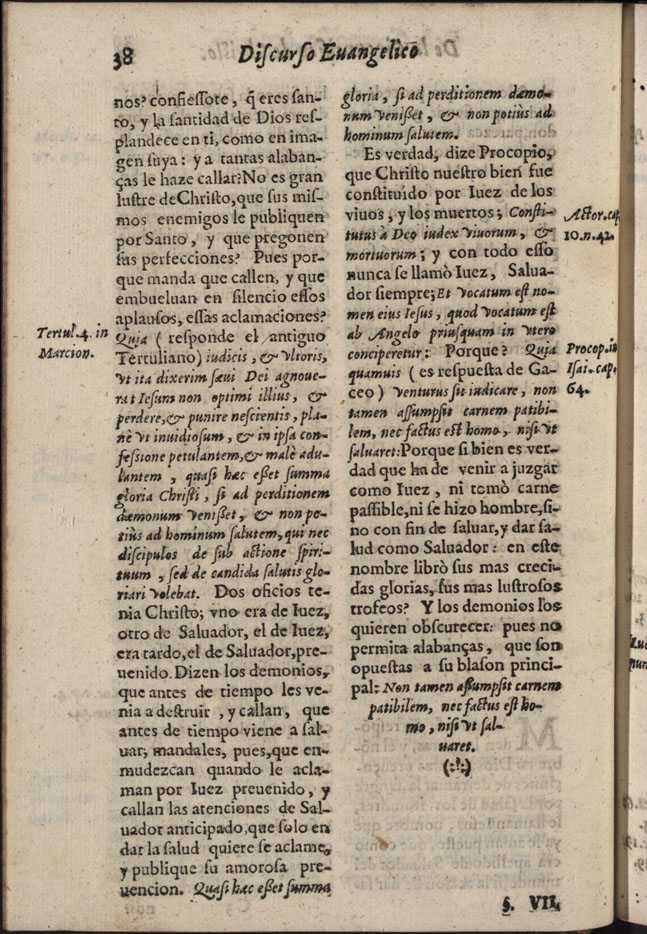 38 Discurso Euangelico
nos? confiessote, q̃ eres san-
to, y la santidad de Dios res-
plandece en ti, como en ima-
gen suya: y a tantas alaban-
ças le haze callar? No es gran
lustre de Christo, que sus mis-
mos enemigos le publiquen
por Santo, y que pregonen
sus perfecciones? Pues por-
que manda que callen, y que
embueluan en silencio essos
aplausos, essas aclamaciones?
Quia (responde el antiguo
Tertuliano) iudicis, & vltoris,
vt ita dixerim sæui Dei agnoue-
rat Iesum non optimi illius, &
perdere, & punire nescientis, pla-
nè vt inuidiosum, & in ipsa con-
fessione petulantem, & malè adu-
lantem, quasi hæc esset summa
gloria Christi, si ad perditionem
dæmonum venisset, & non po-
tiùs ad hominum salutem, qui nec
discipulos de sub actione spiri-
tuum, sed de candida salutis glo-
riari volebat. Dos oficios te-
nia Christo; vno era de Iuez,
otro de Saluador, el de Iuez,
era tardo, el de Saluador, pre-
uenido. Dizen los demonios,
que antes de tiempo les ve-
nia a destruir, y callan, que
antes de tiempo viene a sal-
uar; mandales, pues, que en-
mudezcan quando le acla-
man por Iuez preuenido, y
callan las atenciones de Sal-
uador anticipado, que solo en
dar la salud quiere se aclame,
y publique su amorosa pre-
uencion. Quasi hæc esset summa
Tertul. 4. in
Marcion.
gloria, si ad perditionem dæmo-
num venisset, & non potiùs ad
hominum salutem.
Es verdad, dize Procopio,
que Christo nuestro bien fue
constituído por Iuez de los
viuos, y los muertos; Consti-
tutus à Deo iudex viuorum, &
mortuorum; y con todo esso
nunca se llamò Iuez, Salua-
dor siempre; Et vocatum est no-
men eius Iesus, quod vocatum est
ab Angelo priusquam in vtero
conciperetur: Porque? Quia
quamuis (es respuesta de Ga-
ceo) venturus sit iudicare, non
tamen assumpsit carnem patibi-
lem, nec factus est homo, nisi vt
saluaret: Porque si bien es ver-
dad que ha de venir a juzgar
como Iuez, ni tomò carne
passible, ni se hizo hombre, si-
no con fin de saluar, y dar sa-
lud como Saluador: en este
nombre librò sus mas creci-
das glorias, sus mas lustrosos
trofeos? Y los demonios los
quieren obscurecer: pues no
permita alabanças, que son
opuestas a su blason princi-
pal: Non tamen assumpsit carnem
patibilem, nec factus est ho-
mo, nisi vt sal-
uaret.
(:!:)
Actor. cap.
10. n. 42.
Procop. in
Isai. cap.
64.
§. VII.